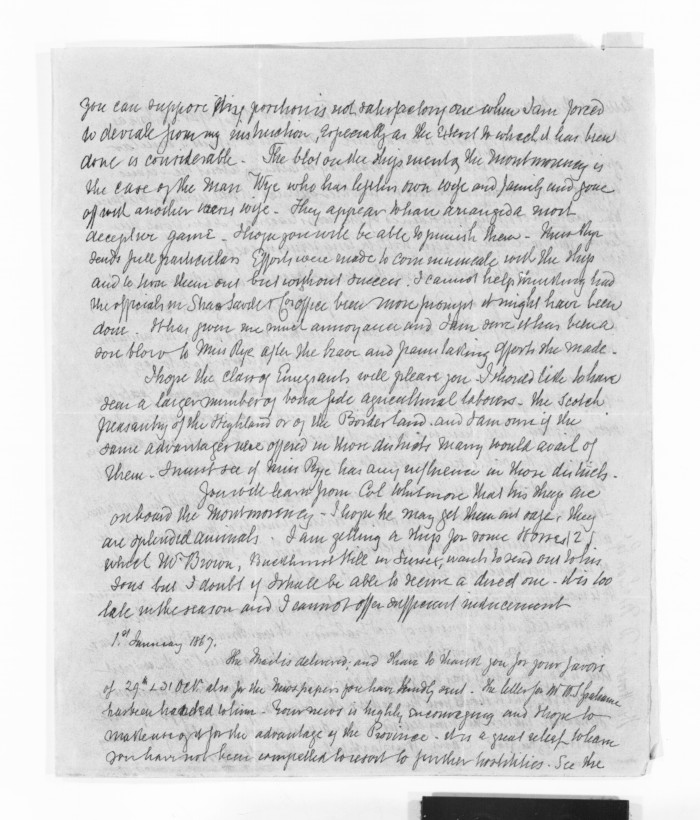 you can support. This portion is not satisfactory one when I am forced
to deviate from my instruction, especially as the extent to which it has been
done is considerable - The blot on the shipment by the Montmorency is
the case of the man Wye who has left his own wife and family and gone
off with another man's wife - They appear to have arranged a most
deceptive game - I hope you will be able to punish them - Miss Rye
sends full particulars Efforts were made to communicate with the ship
and to turn them out but without success. I cannot help thinking had
the officials in Shaw Savill & Co office been more prompt it might have been
done. It has given me much annoyance and I am sure it has been a
sore blow to Miss Rye after the brave and painstaking efforts she made -
I hope the class of Emigrants will please you - I should like to have
seen a larger number of bona fide agricultural labourers - the Scotch
peasantry of the Highland or of the Border land - and I am sure if the
same advantages were offered in those districts many would avail of
them - I must see if Miss Rye has any influence in those districts -
You will learn from Col Whitmore that his sheep are
onboard the Montmorency - I hope he may get them out safe, they
are splendid animals. I am getting a ship for some Horses (2)
which Mr Brown, Buckhurst Hill in Sussex, wants to send out to his
Sons but I doubt if I shall be able to secure a direct one - it is too
late in the season and I cannot offer sufficient inducement
1st January 1867.
The Mail is delivered, and I have to thank you for your favors
of 29th & 31 Oct. also for the Newspapers you have kindly sent - The letter for Mr Grahame
has been handed to him - Your news is highly encouraging and I hope to
make use of it for the advantage of the Province - it is a great relief to learn
you have not been compelled to resort to further hostilities. See the